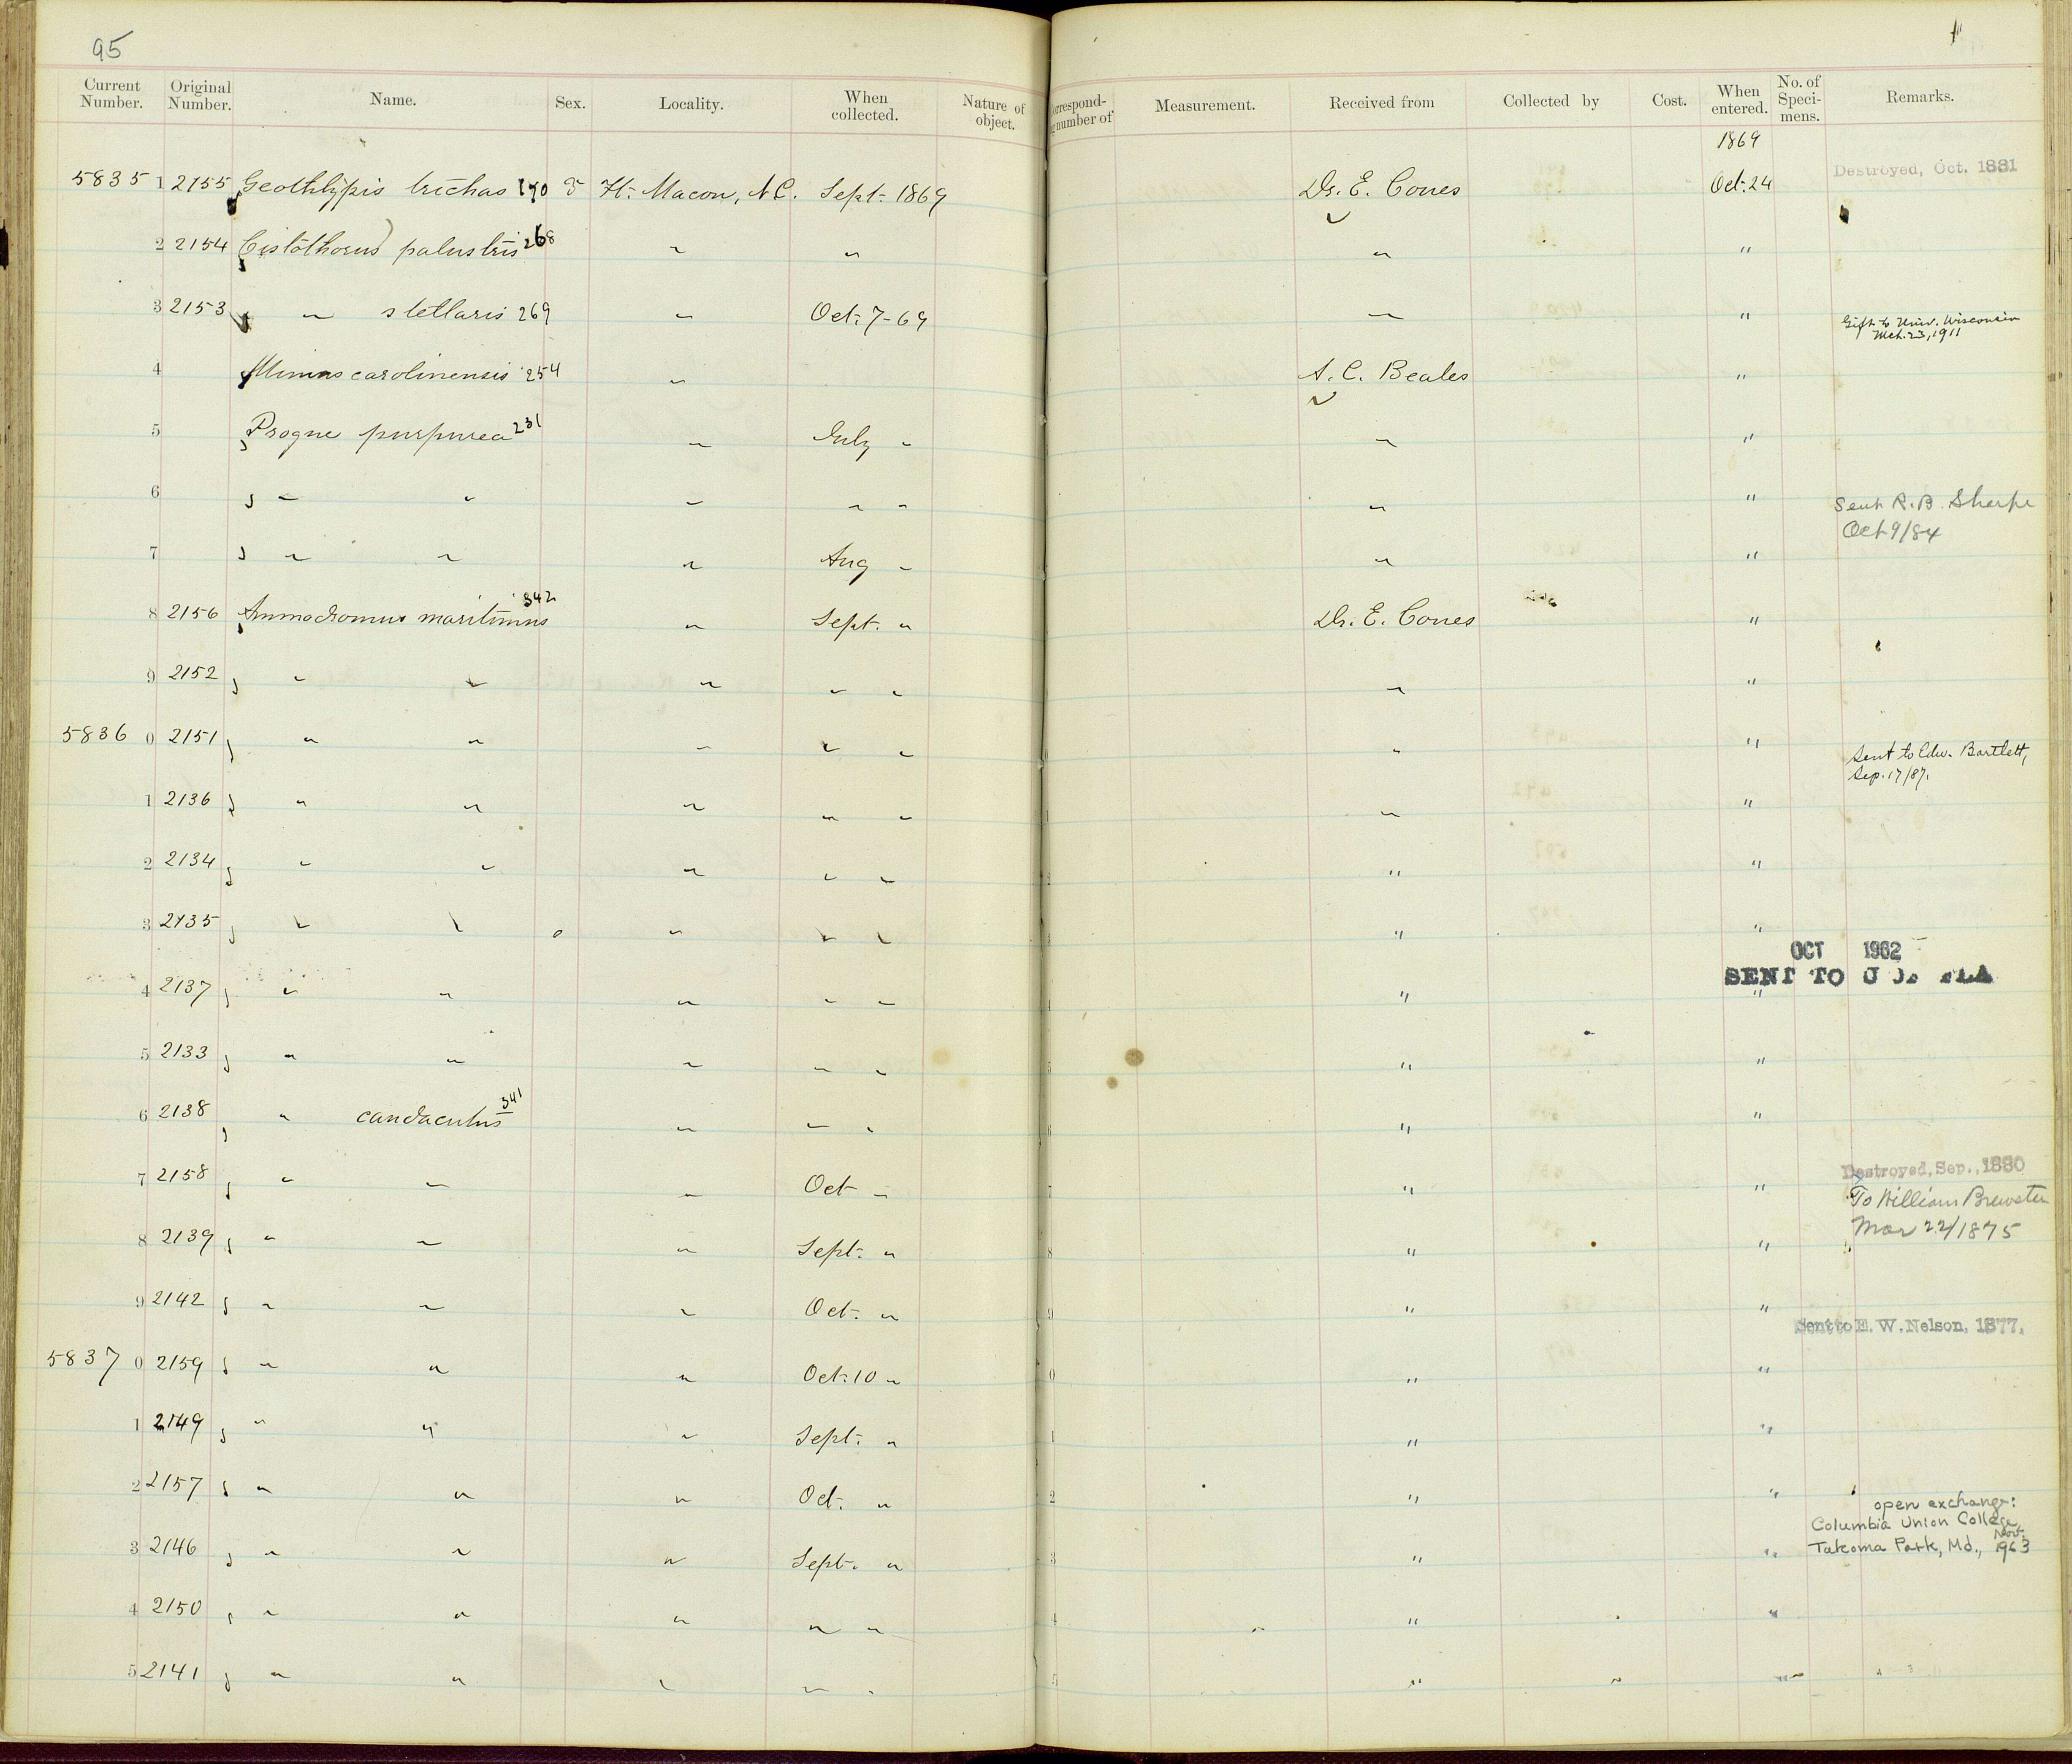 95
Current Number. Original Number. Name. Sex. Locality. When collected. Nature of object. Correspond- number of Measurement. Received from Collected by Cost. When entered. No. of Speci- mens. Remarks.
1869
5835 1 2155 Geothlypis trichas 170 ♂ Ft. Macon, N.C. Sept. 1869 Dr. E. Coues Oct. 24 Destroyed, Oct. 1881
2 2154 Cistothorus palustris 268 " " " "
3 2153 " stellaris 269 " Oct. 7-69 " " Gift to Univ. Wisconsin
Mch. 23, 1911
4 Mimus carolinensis 254 " A. C. Beales "
5 Progne purpurea 231 " July " " "
6 " " " " " " " Sent R. B. Sharpe
Oct 9/84
7 " " " Aug " " "
8 2156 Ammodromus maritimus 342 " Sept. " Dr. E. Coues "
9 2152 " " " " " " "
5836 0 2151 " " " " " " " Sent to Edw. Bartlett,
Sep. 17/87.
1 2136 " " " " " " "
2 2134 " " " " " " "
3 2135 " " " " " " "
OCT 1962
SENT TO U OF FLA
4 2137 " " " " " " "
5 2133 " " " " " " "
6 2138 " caudacutus 341 " " " " "
7 2158 " " " Oct " " " Destroyed, Sep., 1880
To William Brewster
Mar 22/1875
8 2139 " " " Sept. " " "
9 2142 " " " Oct. " " "
Sent to E. W. Nelson, 1877.
5837 0 2159 " " " Oct. 10 " " "
1 2149 " " " Sept. " " "
2 2157 " " " Oct. " " "
open exchange:
Columbia Union College
Takoma Park, Md., Nov. 1963
3 2146 " " " Sept. " " "
4 2150 " " " " " " "
5 2141 " " " " " " "